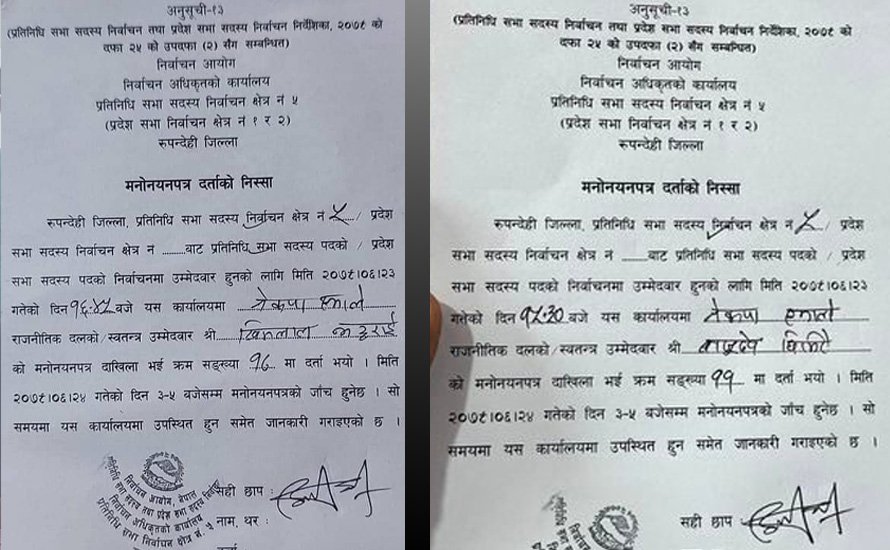 अनुसूची-१३
(प्रतिनिधि सभा सदस्य निर्वाचन तथा प्रदेश सभा सदस्य निर्वाचन निर्देशिका, २०७९ को
दफा २५ को उपदफा (२) सँग सम्बन्धित)
निर्वाचन आयोग
निर्वाचन अधिकृतको कार्यालय
प्रतिनिधि सभा सदस्य निर्वाचन क्षेत्र नं ५
(प्रदेश सभा निर्वाचन क्षेत्र नं १ र २)
रुपन्देही जिल्ला
मनोनयनपत्र दर्ताको निस्सा
रुपन्देही जिल्ला, प्रतिनिधि सभा सदस्य निर्वाचन क्षेत्र नं ५ / प्रदेश
सभा सदस्य निर्वाचन क्षेत्र नं ........बाट प्रतिनिधि सभा सदस्य पदको / प्रदेश
सभा सदस्य पदको निर्वाचनमा उम्मेदवार हुनको लागि मिति २०७९।०६।२३
गतेको दिन १६:४५ बजे यस कार्यालयमा नेकपा एमाले
राजनीतिक दलको/स्वतन्त्र उम्मेदवार श्री खिमलाल भट्टराई
को मनोनयनपत्र दाखिला भई क्रम सङ्ख्या १६ मा दर्ता भयो । मिति
२०७९।०६।२४ गतेको दिन ३-५ बजेसम्म मनोनयनपत्रको जाँच हुनेछ । सो
समयमा यस कार्यालयमा उपस्थित हुन समेत जानकारी गराइएको छ ।
निर्वाचन आयोग, नेपाल
प्रतिनिधि सभा सदस्य तथा प्रदेश सभा सदस्य निर्वाचन
निर्वाचन अधिकृतको कार्यालय
प्रतिनिधि सभा निर्वाचन क्षेत्र नं. ५
सही छाप :
नाम, थर :
अनुसूची-१३
(प्रतिनिधि सभा सदस्य निर्वाचन तथा प्रदेश सभा सदस्य निर्वाचन निर्देशिका, २०७९ को
दफा २५ को उपदफा (२) सँग सम्बन्धित)
निर्वाचन आयोग
निर्वाचन अधिकृतको कार्यालय
प्रतिनिधि सभा सदस्य निर्वाचन क्षेत्र नं ५
(प्रदेश सभा निर्वाचन क्षेत्र नं १ र २)
रुपन्देही जिल्ला
मनोनयनपत्र दर्ताको निस्सा
रुपन्देही जिल्ला, प्रतिनिधि सभा सदस्य निर्वाचन क्षेत्र नं ५ / प्रदेश
सभा सदस्य निर्वाचन क्षेत्र नं ........बाट प्रतिनिधि सभा सदस्य पदको / प्रदेश
सभा सदस्य पदको निर्वाचनमा उम्मेदवार हुनको लागि मिति २०७९।०६।२३
गतेको दिन १५:३० बजे यस कार्यालयमा नेकपा एमाले
राजनीतिक दलको/स्वतन्त्र उम्मेदवार श्री बासुदेव घिमिरे
को मनोनयनपत्र दाखिला भई क्रम सङ्ख्या ११ मा दर्ता भयो । मिति
२०७९।०६।२४ गतेको दिन ३-५ बजेसम्म मनोनयनपत्रको जाँच हुनेछ । सो
समयमा यस कार्यालयमा उपस्थित हुन समेत जानकारी गराइएको छ ।
सही छाप :